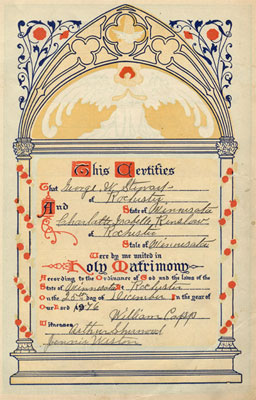 This Certifies
That George W. Stewart
of Rochester
And State of Minnesota
Charlott Isabelle Renslow
of Rochester
State of Minnesota
Were by me united in
Holy Matrimony
According to the Ordinance of God and the laws of the
State of Minnesota at Rochester
On the 25th day of December In the year
Our Lord 1916
William Capp
Witnesses
Arthur Sherwood
Jennie Weston